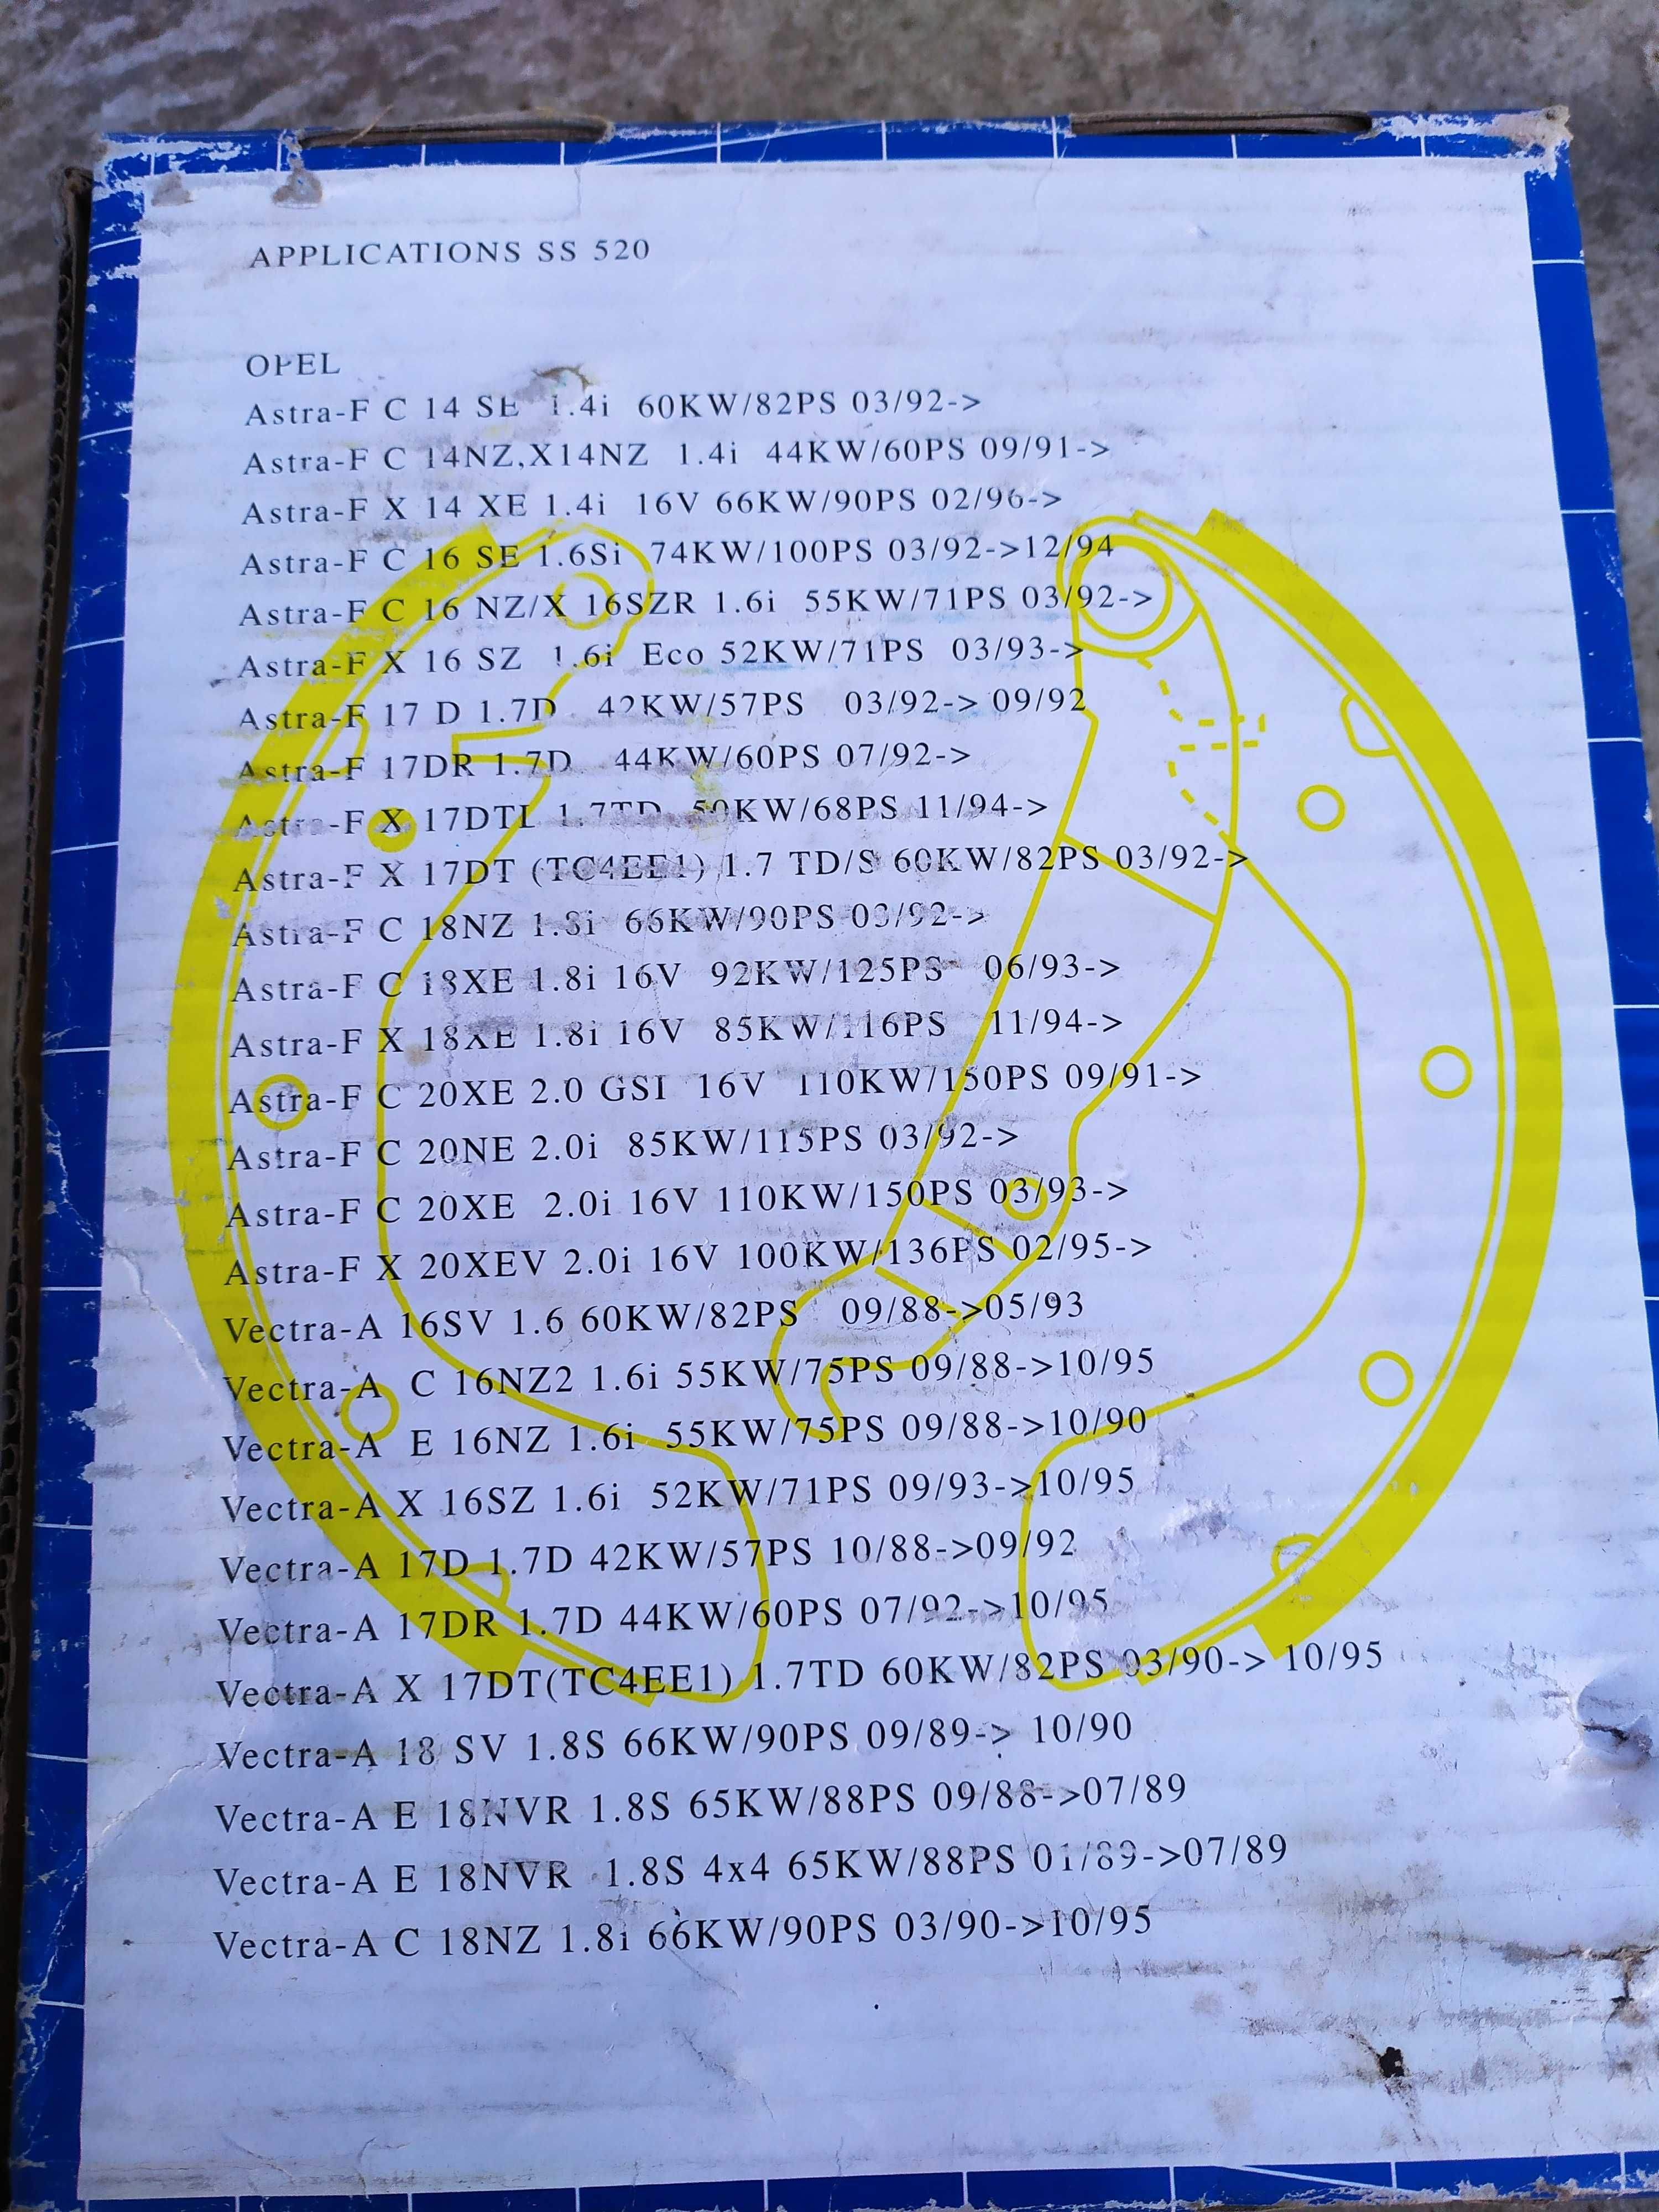 APPLICATIONS SS 520
OPEL
Astra-F C 14 SE 1.4i 60KW/82PS 03/92->
Astra-F C 14NZ,X14NZ 1.4i 44KW/60PS 09/91->
Astra-F X 14 XE 1.4i 16V 66KW/90PS 02/96->
Astra-F C 16 SE 1.6Si 74KW/100PS 03/92->12/94
Astra-F C 16 NZ/X 16SZR 1.6i 55KW/71PS 03/92->
Astra-F X 16 SZ 1.6i Eco 52KW/71PS 03/93->
Astra-F 17 D 1.7D 42KW/57PS 03/92-> 09/92
Astra-F 17DR 1.7D 44KW/60PS 07/92->
Astra-F X 17DTL 1.7TD 50KW/68PS 11/94->
Astra-F X 17DT (TC4EE1) 1.7 TD/S 60KW/82PS 03/92->
Astra-F C 18NZ 1.8i 66KW/90PS 03/92->
Astra-F C 18XE 1.8i 16V 92KW/125PS 06/93->
Astra-F X 18XE 1.8i 16V 85KW/116PS 11/94->
Astra-F C 20XE 2.0 GSI 16V 110KW/150PS 09/91->
Astra-F C 20NE 2.0i 85KW/115PS 03/92->
Astra-F C 20XE 2.0i 16V 110KW/150PS 03/93->
Astra-F X 20XEV 2.0i 16V 100KW/136PS 02/95->
Vectra-A 16SV 1.6 60KW/82PS 09/88->05/93
Vectra-A C 16NZ2 1.6i 55KW/75PS 09/88->10/95
Vectra-A E 16NZ 1.6i 55KW/75PS 09/88->10/90
Vectra-A X 16SZ 1.6i 52KW/71PS 09/93->10/95
Vectra-A 17D 1.7D 42KW/57PS 10/88->09/92
Vectra-A 17DR 1.7D 44KW/60PS 07/92->10/95
Vectra-A X 17DT(TC4EE1) 1.7TD 60KW/82PS 03/90-> 10/95
Vectra-A 18 SV 1.8S 66KW/90PS 09/89-> 10/90
Vectra-A E 18NVR 1.8S 65KW/88PS 09/88->07/89
Vectra-A E 18NVR 1.8S 4x4 65KW/88PS 01/89->07/89
Vectra-A C 18NZ 1.8i 66KW/90PS 03/90->10/95